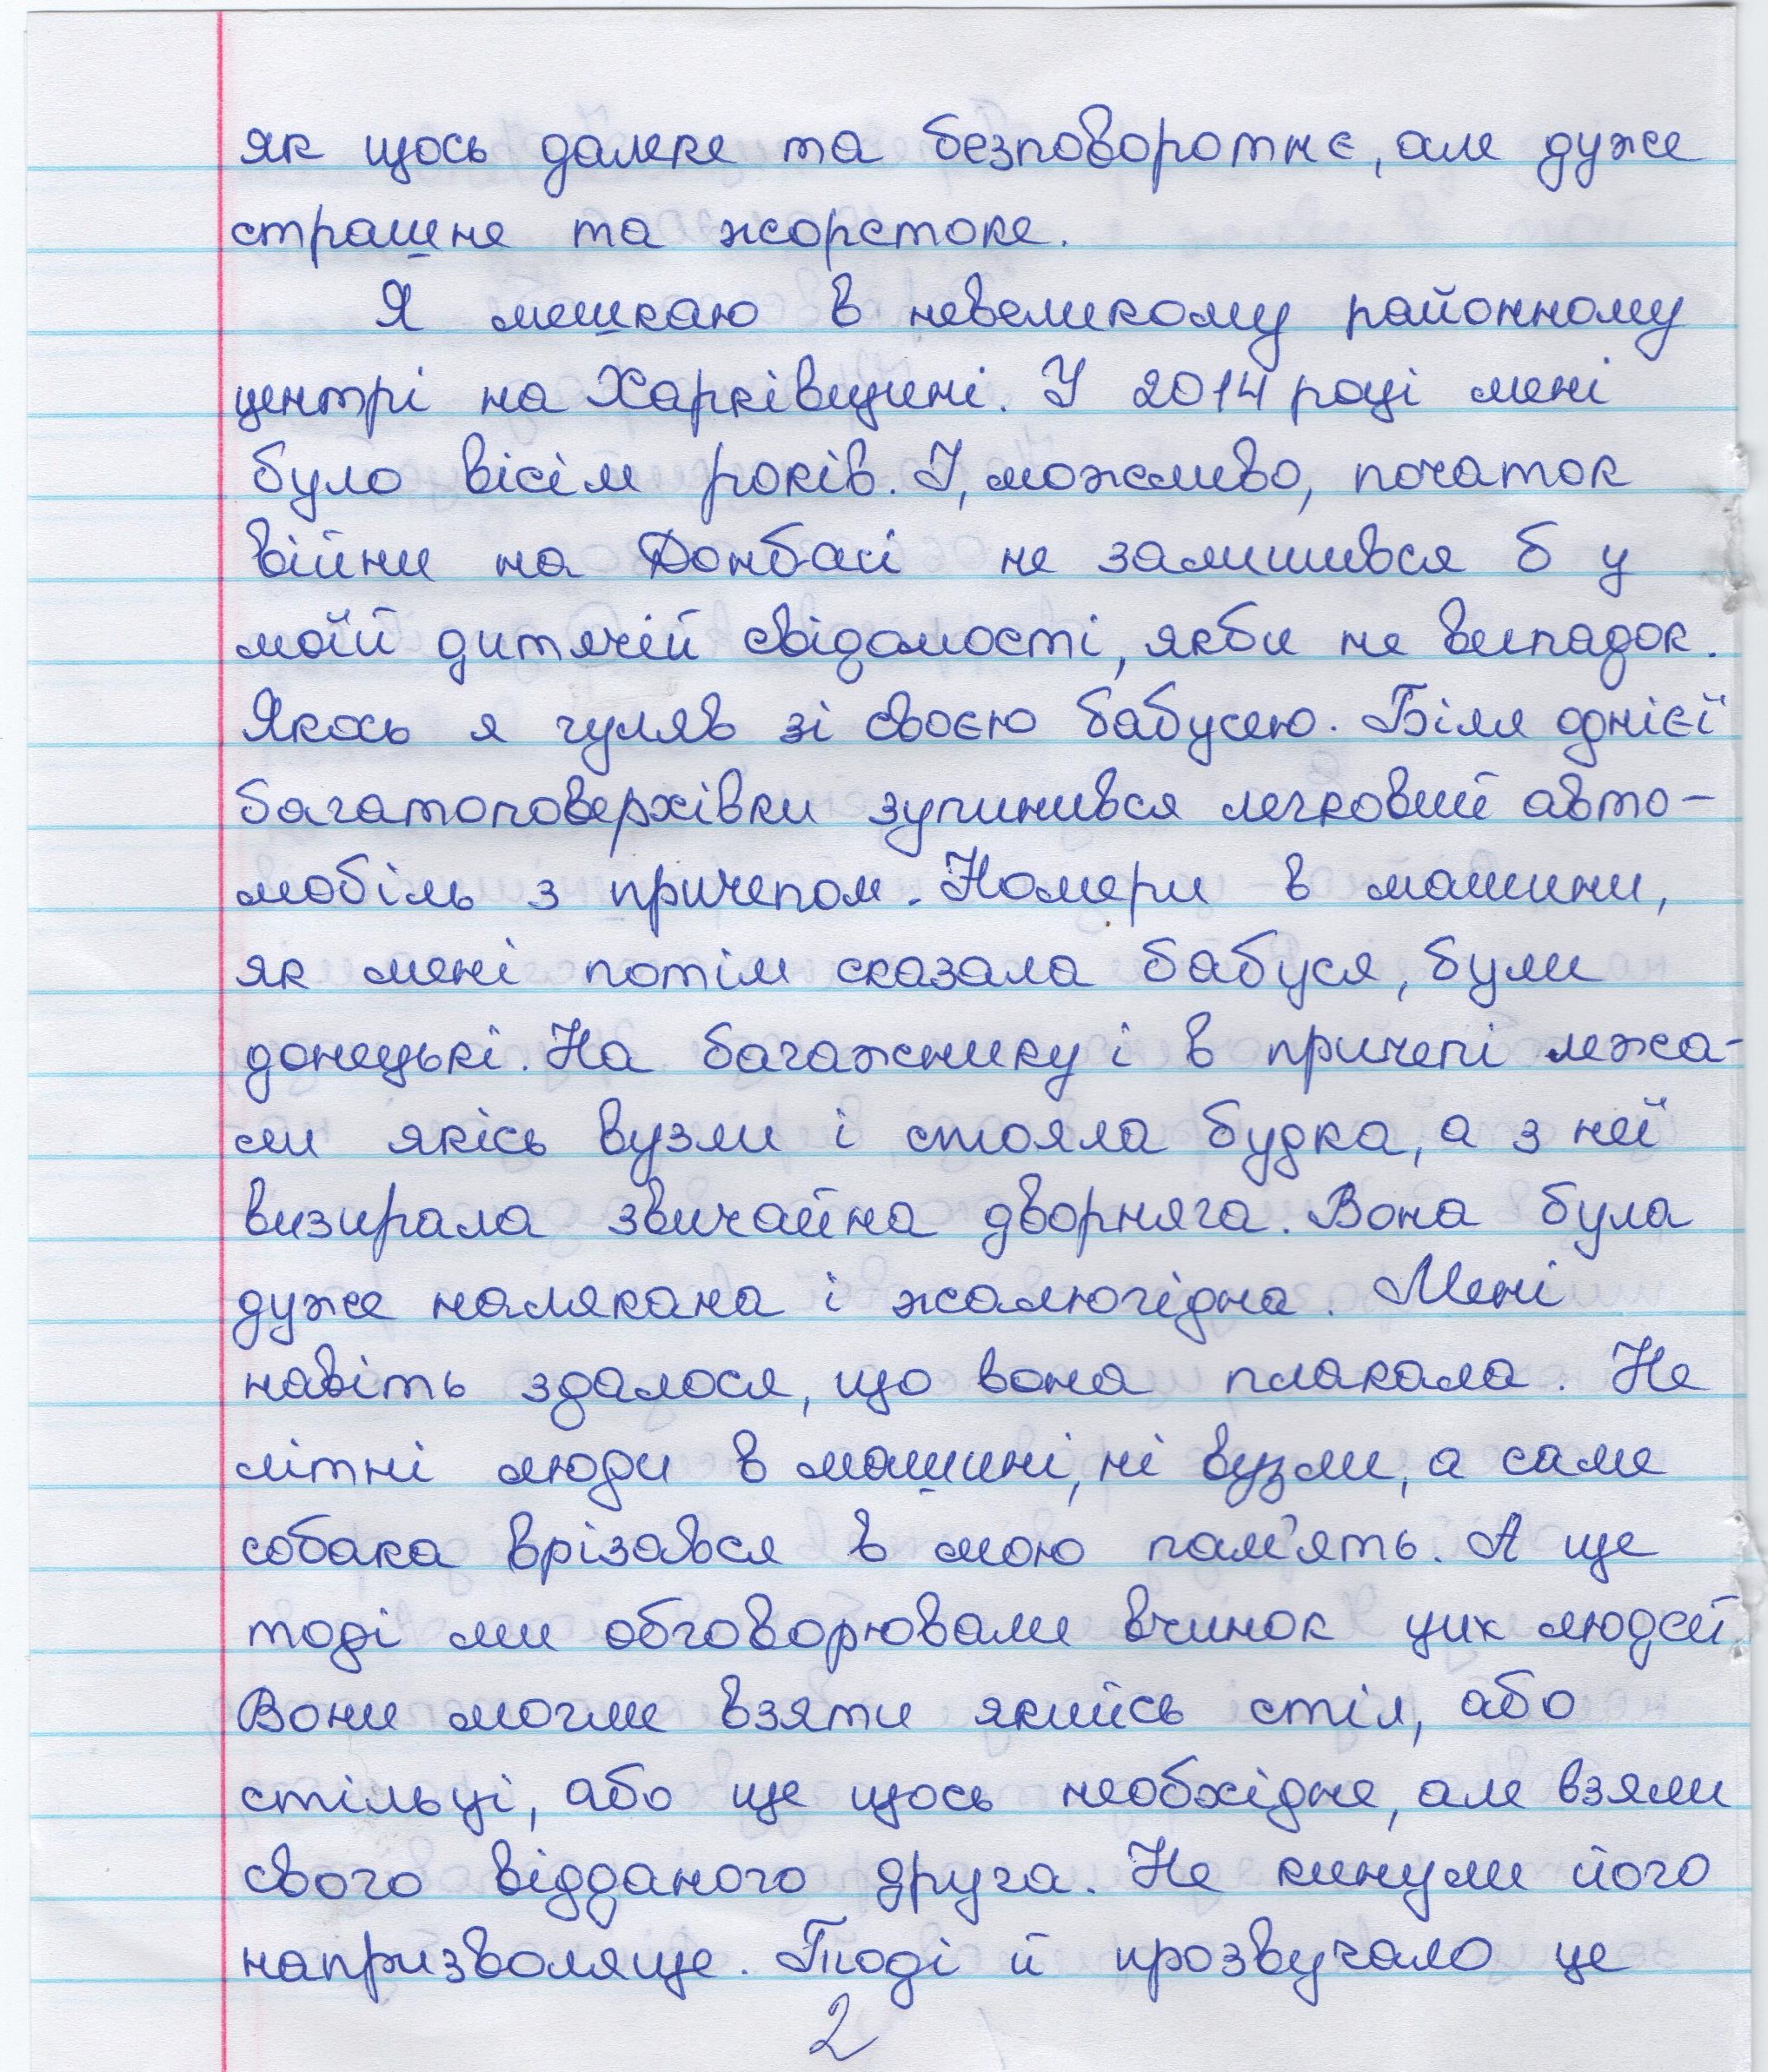 як щось далеке та безповоротнє, але дуже
страшне та жорстоке.
Я мешкаю в невеликому районному
центрі на Харківщині. У 2014 році мені
було вісім років. І, можливо, початок
війни на Донбасі не залишився б у
моїй дитячій свідомості, якби не випадок.
Якось я гуляв зі своєю бабусею. Біля однієї
багатоповерхівки зупинився легковий авто-
мобіль з причепом. Номери в машини,
як мені потім сказала бабуся, були
донецькі. На багажнику і в причепі лежа-
ли якісь вузли і стояла будка, а з неї
визирала звичайна дворняга. Вона була
дуже налякана і жалюгідна. Мені
навіть здалося, що вона плакала. Не
літні люди в машині, ні вузли, а саме
собака врізався в мою пам'ять. А ще
тоді ми обговорювали вчинок цих людей.
Вони могли взяти якийсь стіл, або
стільці, або ще щось необхідне, але взяли
свого відданого друга. Не кинули його
напризволяще. Тоді й прозвучало це
2